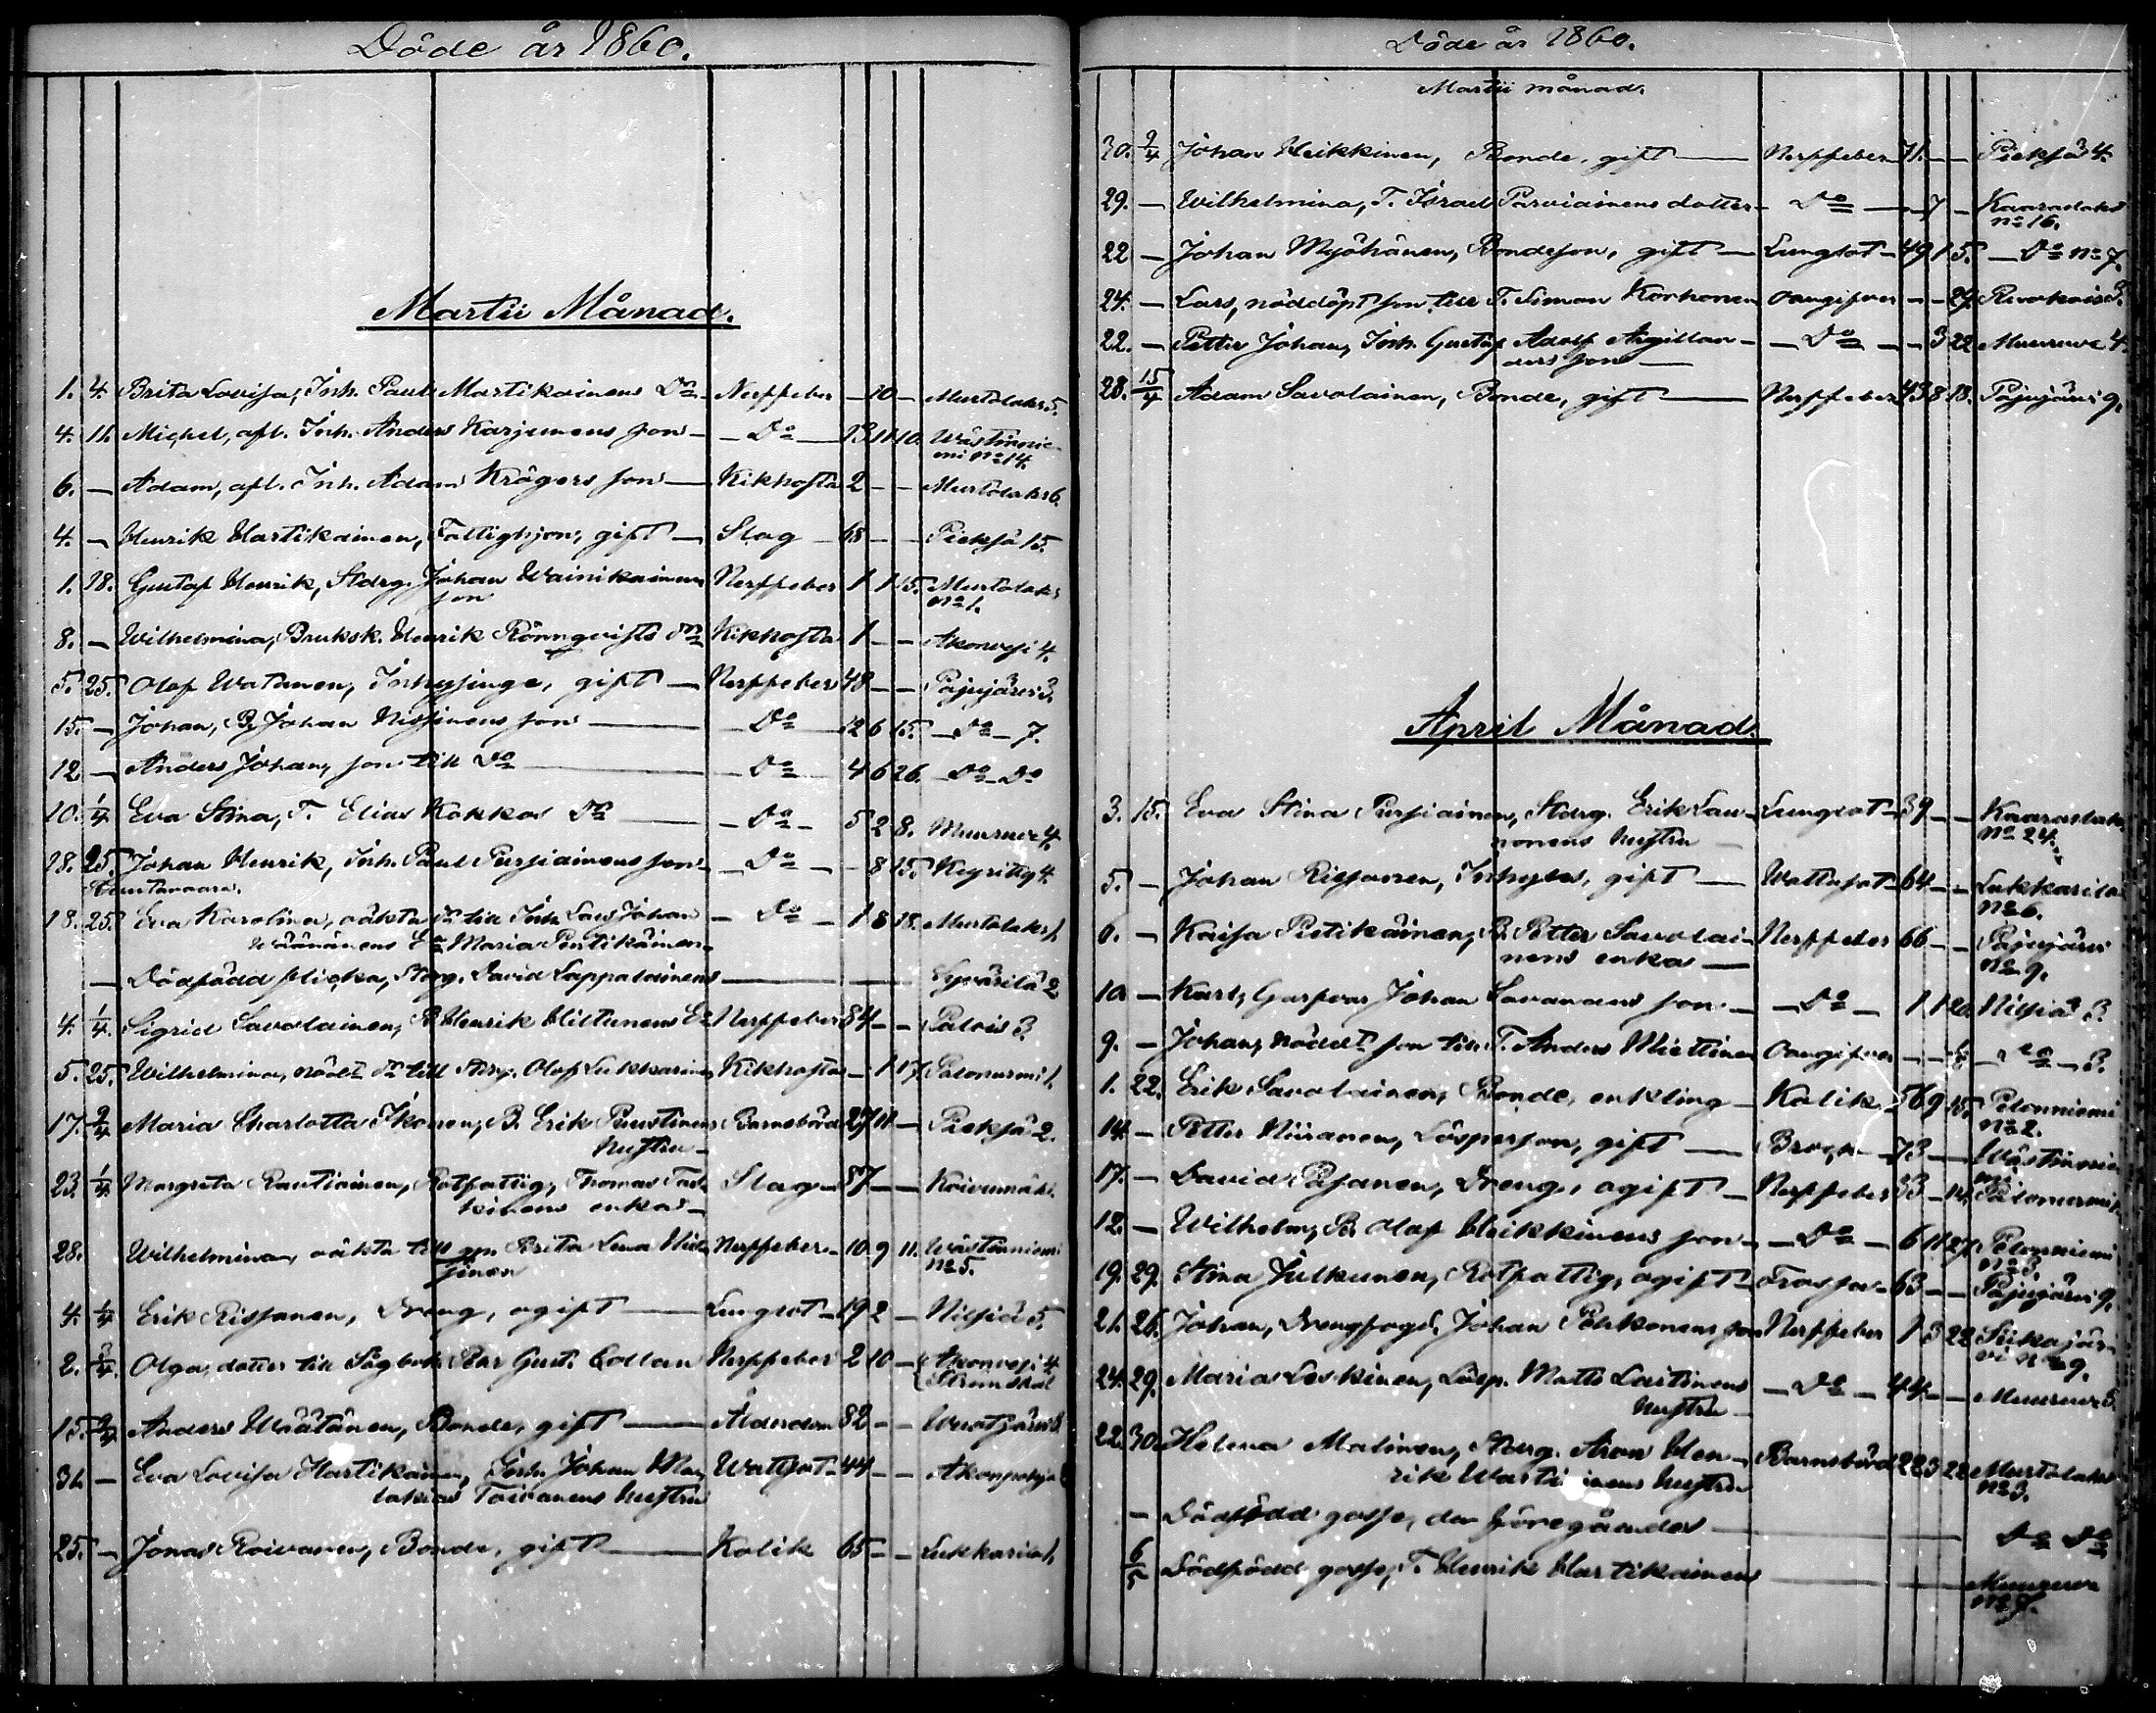 Döde år 1860.
Martii Månad.
1. 4. Brita Lovisa, Inh. Paul Martikainens Dr Nerffeber — 10 — Murtolaks 5.
4. 11. Michel, afl. Inh. Anders Karjunens son — Do — 13 11 10. Wästinnie-
mi No 14.
6. — Adam, afl. Inh. Adam Krögers son — Kikhosta 2 — — Murtolaks 6.
4. — Henrik Martikainen, Fattighjon, gift — Slag 68 — — Pieksä 15.
1. 18. Gustaf Henrik, Stdrg. Johan Wainikainens Nerffeber 1 1 15. Murtolaks
son No 1.
8. — Wilhelmina, Bruksk. Henrik Rönnqvists Dr Kikhosta 1 — — Akonvesi 4.
5. 25. Olof Watanen, Inhysinge, gift — Nerffeber 48 — — Pajujärvi 3.
15. — Johan, B. Johan Nissinens son — Do — 12 6 15. — Do — 7.
12 — Anders Johan, son till Do — Do — 4 6 26. — Do — Do
10. 1/4 Eva Stina, T. Elias Kokkos Dr — Do — 5 2 8. Muuruve 4.
18. 25. Johan Henrik, Inh. Paul Pursiainens son — Do — — 8 15. Keyritty 4.
18. 25. Eva Karolina, oäkta Dr till Inh. Lars Johan — Do — 1 8 18. Murtolaks 1.
Wäänänens Ea Maria Pentikäinen
— Dödfödd flicka, Stdrg. David Lappalainens — Syvärilä 2
4. 1/4 Sigrid Savolainen, B. Henrik Hiltunens Ea Nerffeber 84 — — Palois 3.
5. 25. Wilhelmina, nöddt Dr till Stdrg. Olof Lukkarinen Kikhosta — 1 17. Palonurmi 1.
17. 9/4 Maria Charlotta Ikonen, B. Erik Puustinens Barnsbörd 27 11 — Pieksä 2.
hustru —
23. 1/4 Margreta Rautiainen, Rotfattig, Thomas Tas- Slag — 87 — — Koivumäki
kinens enka —
28. Wilhelmina, oäkta till Brita Lena Nerffeber — 10. 9 11. Wästinniemi
No 5.
4. 1/4 Erik Rissanen, Dreng, ogift — Lungsot — 19 2 — Nilsiä 5.
2. 9/4 Olga, dotter till Sågbok. Per Gust. Collan Nerffeber 2 10 — Akonvesi 4
Strömsdal
15. 9/4 Anders Wäätänen, Bonde, gift — Ålderdom 82 — — Vuotjärvi 8
31. — Eva Lovisa Hartikainen, Inh. Johan Ma- Wattsot — 44 — — Akonpohja
lakias Toivanens hustru
25. — Jonas Roivanen, Bonde, gift — Kolik 65 — — Lukkarila 1.
Döde år 1860.
Martii månad.
30. 9/4 Johan Heikkinen, Bonde, gift — Nerffeber 71. — — Pieksä 4.
29. — Wilhelmina, T. Israel Parviainens dotter — Do — — 7 — Kaaraslaks
No 16.
22 — Johan Myöhänen, Bondeson, gift — Lungsot — 49 1 5. — Do No 7.
24. — Lars, nöddöpt son till T. Simon Korhonen oangifven — — 29. 3.
22. — Petter Johan, Inh. Gustaf Adolf Argillan- — Do — — 3 22 Muuruve 4.
ders son —
28. 15/4 Adam Savolainen, Bonde, gift — Nerffeber 43 8 18. Pajujärvi 9.
April Månad.
3. 15. Eva Stina Pursiainen, Stdrg. Erik Lau- Lungsot — 39 — — Kaaraslaks
nonens hustru — No 24.
5. — Johan Rissanen, Inhyses, gift — Wattusot — 64 — — Lukkarila
No 6.
6. — Kaisa Pietikäinen, B. Petter Savolai- Nerffeber 66 — — Pajujärvi
nens enka — No 9.
10 — Karl, Garfvar Johan Savanders son — — Do — 1 1 20. Nilsiä 3.
9. — Johan, nöddt son till T. Anders Miettinen Oangifven — — — Do — 3.
1. 22. Erik Savolainen, Bonde, enkling — Kolik 56 9 15. Pelonniemi
No 2.
14. — Petter Niiranen, Lösperson, gift — Brock — 73 — Wästinnie-
mi
17. — David Pasanen, Dreng, ogift — Nerffeber 33 — 14. Palonurmi 1.
12. — Wilhelm, B. Olof Heikkinens son — — Do — 6 11 27. Pelonniemi
No 3.
19. 29. Stina Julkunen, Rotfattig, ogift — Frossa — 63 — — Pajujärvi 9.
21. 26. Johan, Drengfogd. Johan Pölkkonens son Nerffeber 1 3 22 Siikajär-
vi No 9.
24. 29. Maria Leskinen, Lösp. Matts Laitinens — Do — 44 — — Muuruve 5.
hustru —
22. 30. Helena Malinen, Stdrg. Aron Hen- Barnsbörd 22 5 22 Murtolaks
rik Wartiainens hustru No 3.
— Dödfödd gosse, den föregåendes — Do Do
6/5 Dödfödd gosse, T. Henrik Hartikainens — Muuruve
No 7.